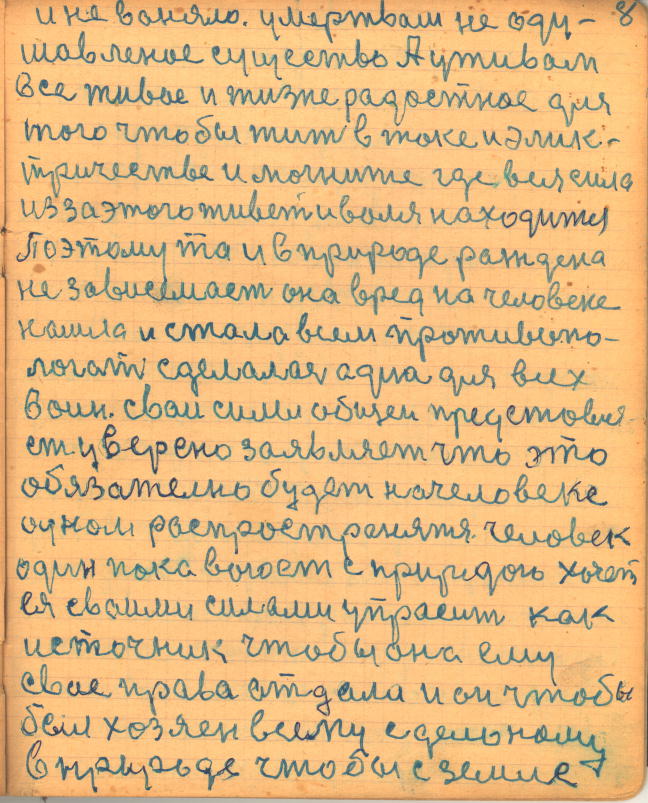 8
и не воняло. умертвам не оду-
шавленое существо А уживам
все живое и жизне радостное для
того чтобы жит в токе и элик-
тричестве и могните где вся сила
из за этого живет и воля находится
Поэтому та и в природе раждена
не зависемаст она вред на человеке
нашла и стала всем противопо-
логат сделалас адна для всех
воин. сваи сили общеи предстовля
ет уверено заявляет что это
обязателно будет на человеке
одном распространятя. человек
один пока воюет с природою хочет
ея своими силами упрасит как
источник чтобы она ему
свое права отдала и он чтобы
был хозяен всему сделоному
в природе чтобы с земле